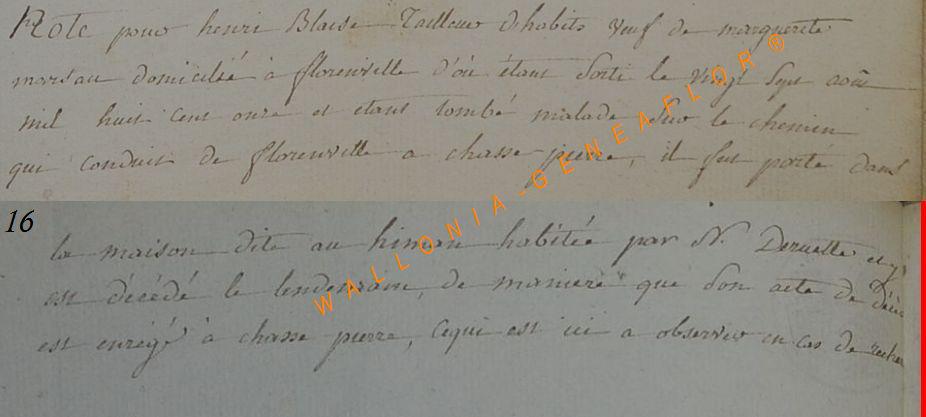 Note pour henri Blaise Tailleur dhabits veuf de marguerite
marsau domicilié à florenville d'où étant Sorti le vingt Sept août
mil huit cent onze et étant tombé malade Sur le chemin
qui conduit de florenville a chasse pierre, il fut porté dans
16
la maison dite au himau habitée par N. Deruette et y
est décédé le lendemain, de maniere que Son acte de Décès
est enrégé à chasse pierre, Cequi est ici a observer en cas de
WALLONIA-GENEAFLOR ®